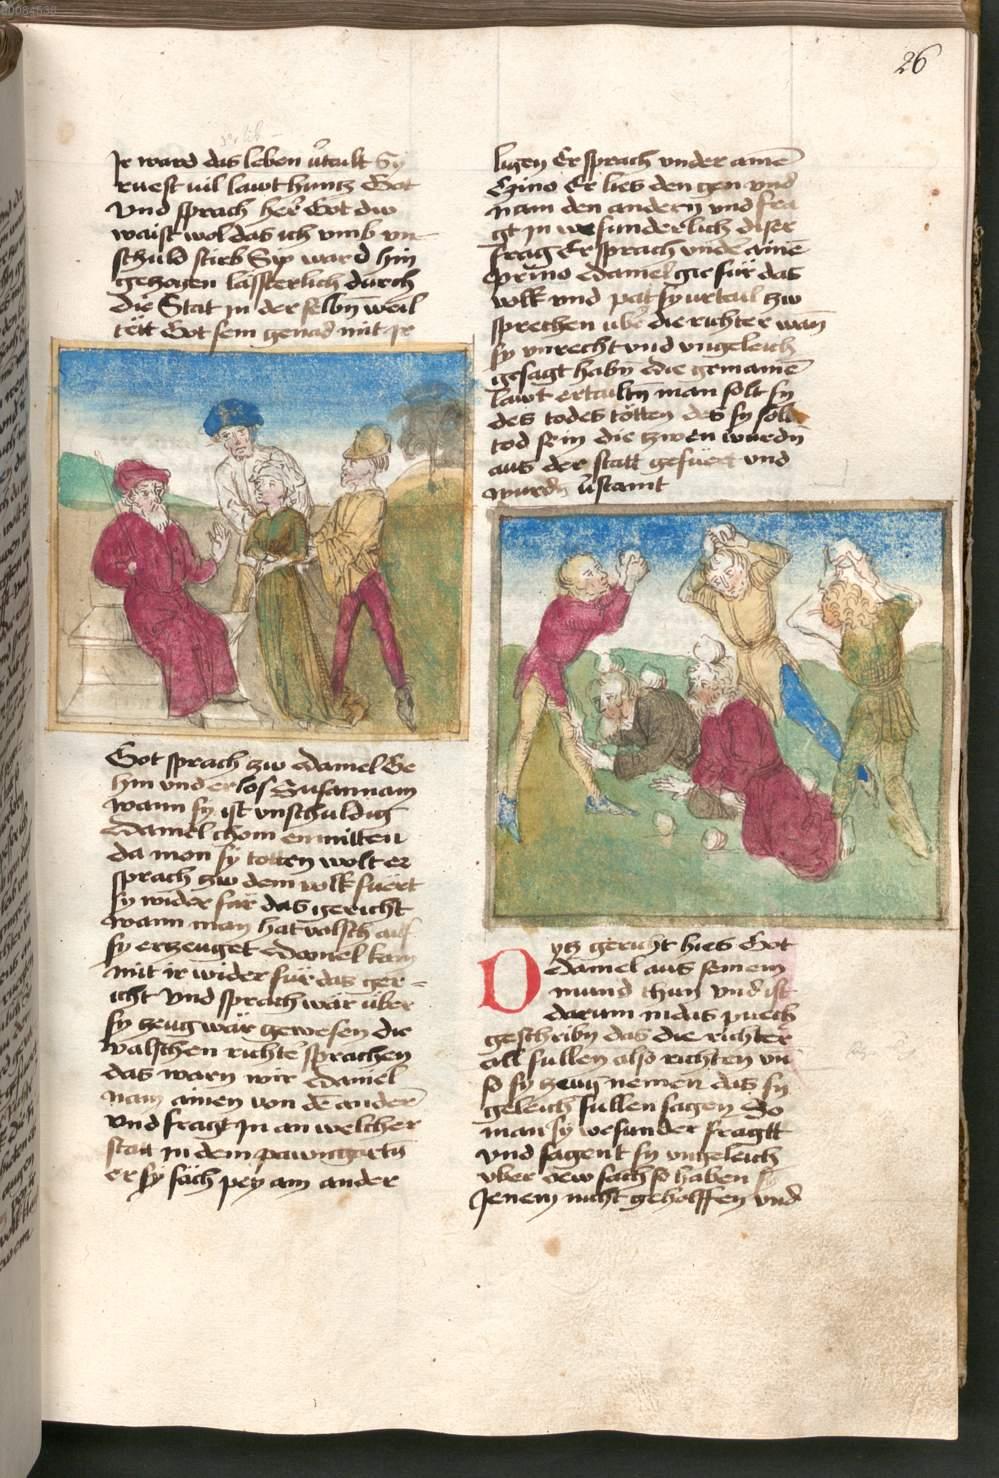 26
Ir ward das leben v̈tailt Sy
ruest vil lawt huntz Got
Vnd sprach her Got dw
waist wol das ich vmb vn
schuld stirb Sy ward hin
gezogen lässterlich durch
die Stat In der selbn weil
tett Got sein genad mit Ir
Got sprach zw Daniel Ge
hin vnd erlos Susannam
wann sy ist vnschuldig
Daniel chom enmitten
da mon sy totten wolt er
sprach zw dem volk fuert
sy wider für das gericht
wann man hat valsch auf
sy erzeuget Daniel kam
mit ir wider für das ger
icht Vnd sprach wär über
sy zeug wär gewesen die
valschen richter sprachen
das warn wir Daniel
nam ainen von dē ander
Vnd fragt In an welcher
statt In dem pawmgartn
er sy säch pey am ander
ligen Er sprach vnder amē
Cino Er lies den gen vnd
nam den andern vnd fra
gt in we sunderlich diser
frag Er sprach vnder aine
prino Daniel gie für das
volk vnd pat sy urtail zw
sprechen über die richter wan
sy vnrecht vnd vngeleich
gesagt habn Die gemaine
lawt ertailtn man solt sy
des todes tötten des sy solt
tod sein die zwen wurdn
aus der statt gefuert vnd
wurdn v̈staint
Dytz gericht hies Got
Daniel aus seinem
mund thun Vnd ist
darum in das puech
geschribn das die richter
all sullen also richten vn
so sy zeug nemen das sy
geleich sullen sagen So
man sy wesunder fragtt
vnd sagent sy vngeleich
vber dew sach so haben
Jenem nicht geholffen vnd